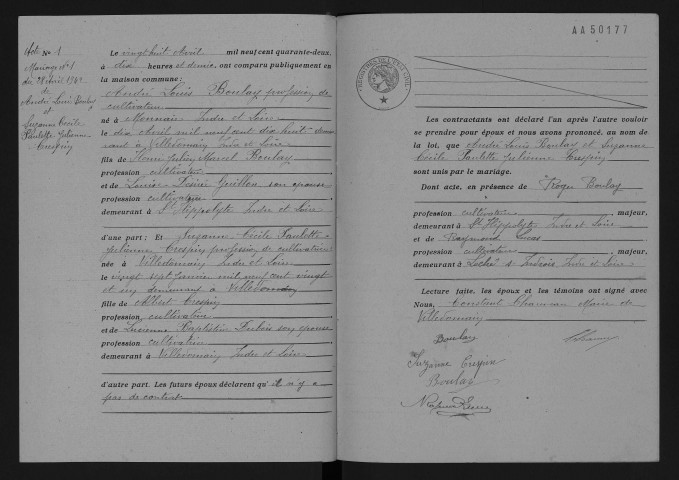 Acte No 1
Mariage No 1
du 28 Avril 1942
de
André Louis Boulay
et
Suzanne Cécile
Paulette Julienne
Crespin
Le vingt huit Avril mil neuf cent quarante-deux,
à dix heures et demie, ont comparu publiquement en
la maison commune:
André Louis Boulay profession de
cultivateur
né à Monnaie Indre et Loire
le dix Avril mil neuf cent dix huit
à Villedomain Indre et Loire
fils de Henri Julien Marcel Boulay
profession cultivateur
et de Louise Désiré Guillou son épouse
profession cultivatrice
demeurant à St Hippolyte Indre et Loire
d'une part: Et Suzanne Cécile Paulette
Julienne Crespin profession de cultivatrice
née à Villedomain Indre et Loire
le vingt sept Janvier mil neuf cent vingt
et un demeurant à Villedomain
fille de Albert Crespin
profession cultivateur
et de Lucienne Baptistine Dubois son épouse
profession cultivatrice
demeurant à Villedomain Indre et Loire
d'autre part. Les futurs époux déclarent qu'il n'y a
pas de contrat
AA50177
Les contractants ont déclaré l'un après l'autre vouloir
se prendre pour époux et nous avons prononcé, au nom de
la loi, que André Louis Boulay et Suzanne
Cécile Paulette Julienne Crespin
sont unis par le mariage.
Dont acte, en présence de Roger Boulay
profession cultivateur majeur,
demeurant à St Hippolyte Indre et Loire
et de Raymond Lucas
profession cultivateur majeur,
demeurant à Loché s Indrois Indre et Loire
Lecture faite, les époux et les témoins ont signé avec
Nous, Constant Maire de
Villedomain
Boulay
Suzanne Crespin
Boulay